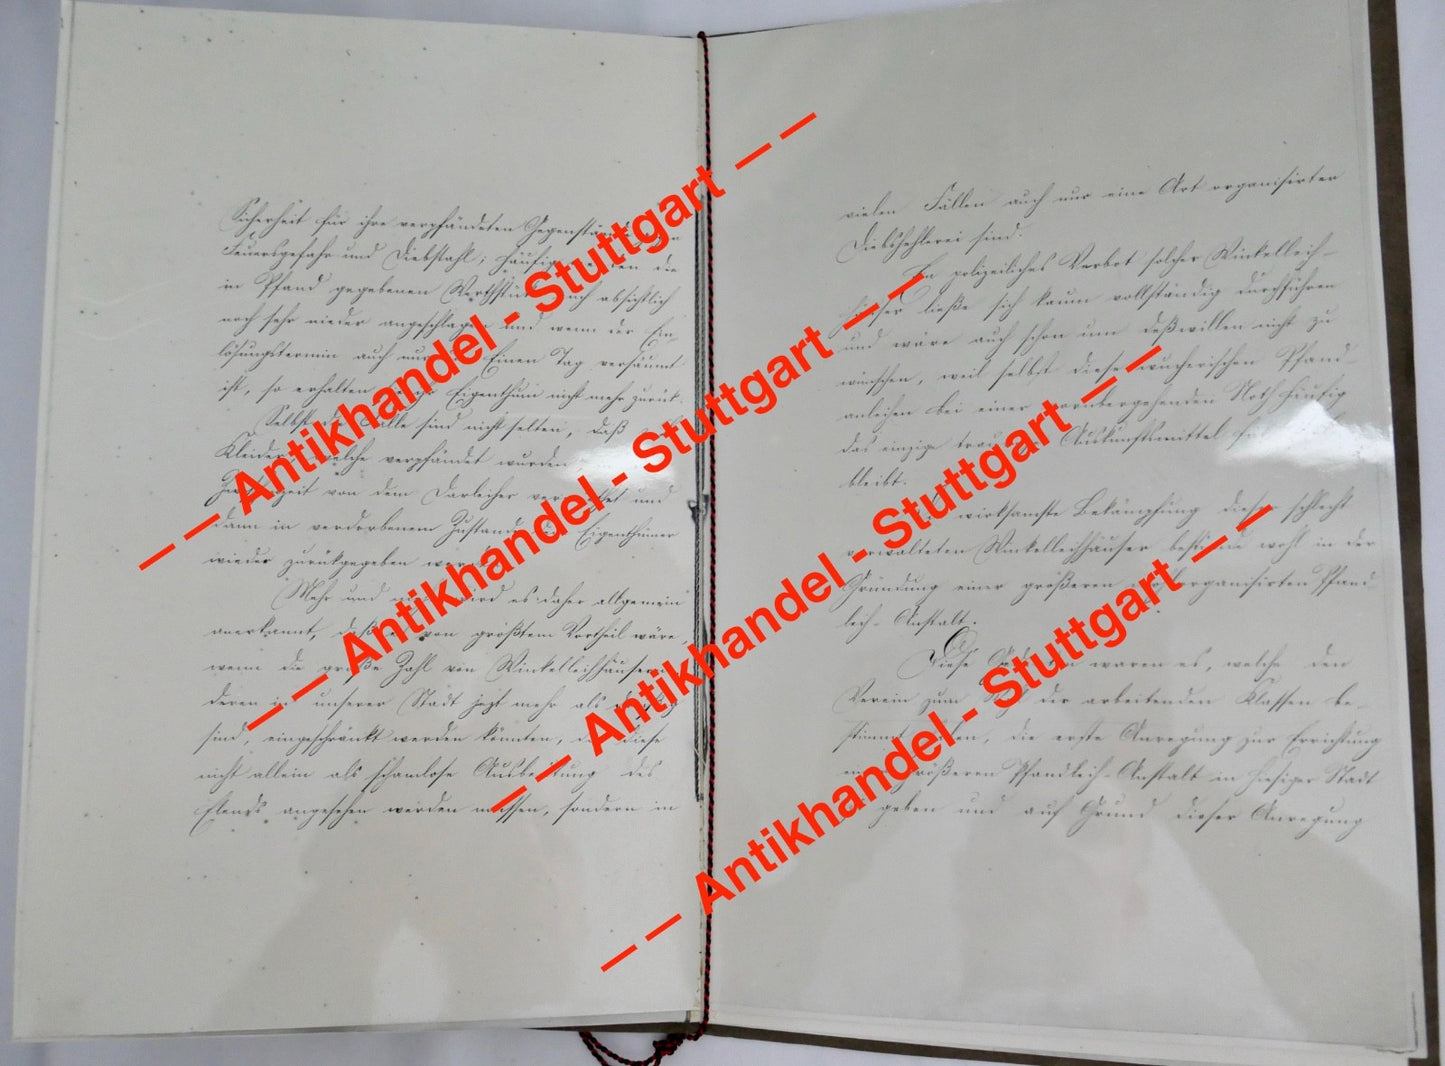 Sicherheit für ihre verpfändeten Gegenstände
Feuersgefahr und Diebstahl; häufig die
in Pfand gegebenen auch absichtlich
noch sehr nieder angeschlagen und wenn der Ein-
lösungstermin auch nur Einen Tag versäumt
ist, so erhalten Eigenthum nicht mehr zurück.
Selbst Fälle sind nicht selten, daß
Kleider, welche verpfändet wurden
von dem Darleiher und
dann in verdorbenem Zustande Eigenthümer
wieder zurückgegeben
Mehr und wird es daher allgemein
anerkannt, von größtem Vortheil wäre,
wenn die große Zahl von Winkelleihhäusern
deren in unserer Stadt jezt mehr als
sind, eingeschränkt werden könnten, diese
nicht allein als schamlose Ausbeutung des
Elends angesehen werden müssen, sondern in
vielen Fällen auch nur eine Art organisirter
Diebshehlerei sind.
Ein polizeiliches Verbot solcher Winkelleih-
häuser ließe sich kaum vollständig durchführen
und wäre auch schon um deßwillen nicht zu
wünschen, weil selbst diese wucherischen Pfand-
anleihen bei einer vorübergehenden Noth häufig
das einzige Auskunftsmittel
bleibt.
wirksamste Bekämpfung dieser schlecht
verwalteten Winkelleihhäuser bestünde wohl in der
Gründung einer größeren wohlorganisirten Pfand-
leih-Anstalt.
Diese Gedanken waren es, welche den
Verein zum Wohl der arbeitenden Klassen be-
stimmt haben, die erste Anregung zur Errichtung
einer größeren Pfandleih-Anstalt in hiesiger Stadt
geben und auf Grund dieser Anregung
— — Antikhandel - Stuttgart — —
— — Antikhandel - Stuttgart — —
— — Antikhandel - Stuttgart — —
— — Antikhandel - Stuttgart — —